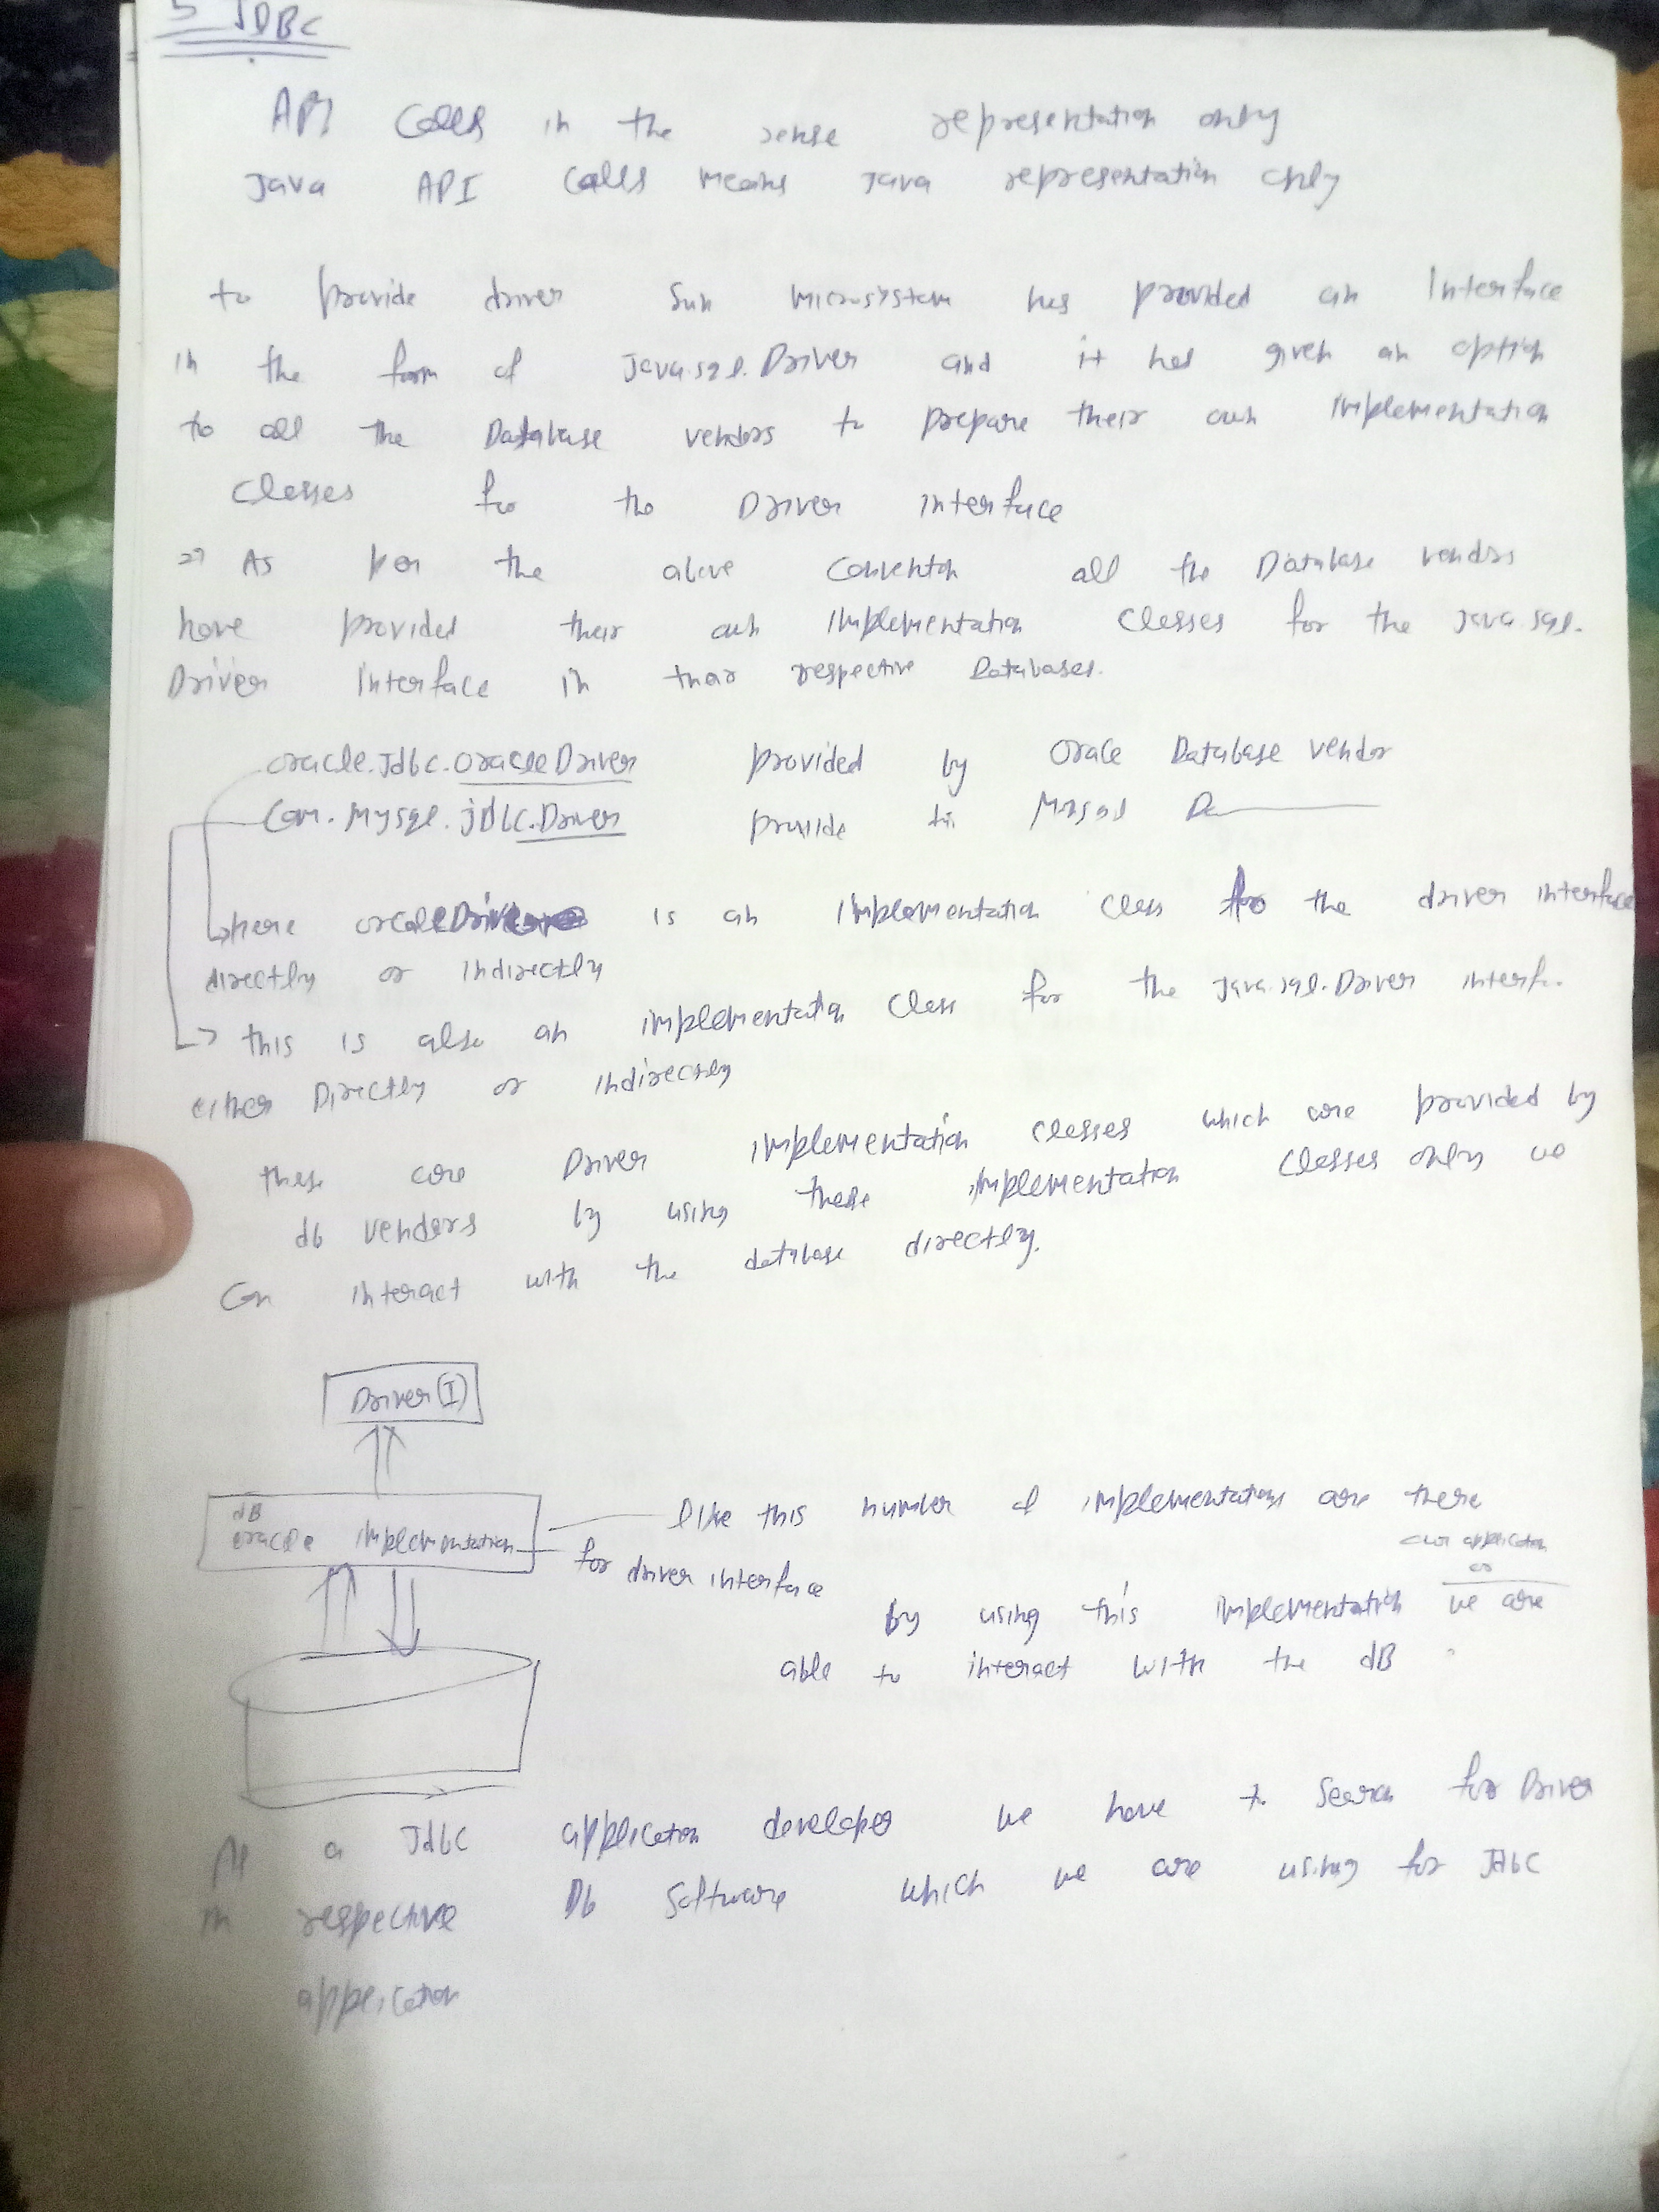 5 JDBC
API Calls in the sense representation only
Java API Calls means Java representation only
to provide driver Sun microsystem has provided an Interface
in the form of Java.sql.Driver and it has given an option
to all the Database vendors to prepare their own implementation
classes for the Driver interface
=> As per the above convention all the Database vendors
have provided their own implementation classes for the java.sql.
Driver interface in their respective Databases.
oracle.Jdbc.oracleDriver provided by Oracle Database vendor
Com.Mysql.jdbc.Driver provide by Mysql D
here oracleDriver is an implementation class for the driver interface
directly or indirectly
this is also an implementation class for the Java.sql.Driver interf.
either Directly or indirectly
these are Driver implementation classes which are provided by
db vendors by using these implementation classes only we
Can interact with the database directly.
Driver (I)
dB
oracle implementation
like this number of implementations are there
for driver interface
our application
or
by using this implementation we are
able to interact with the dB
As a Jdbc application developer we have to Search for Driver
in respective Db Software which we are using for Jdbc
application